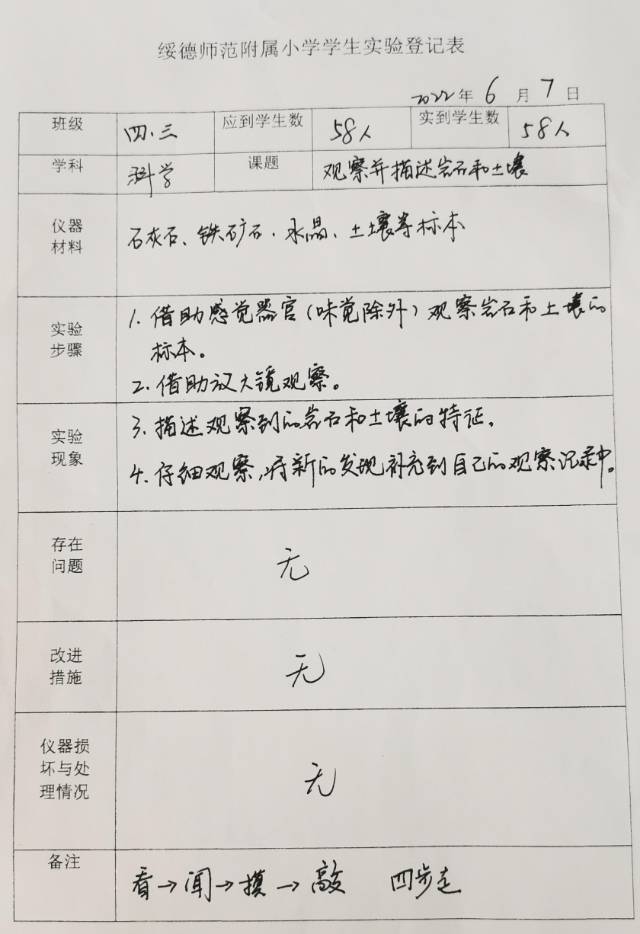 绥德师范附属小学学生实验登记表
2022年 6 月 7 日
班级 四.三 应到学生数 58人 实到学生数 58人
学科 科学 课题 观察并描述岩石和土壤
仪器
材料
石灰石、铁矿石.水晶、土壤等标本
实验
步骤
1.借助感觉器官(味觉除外)观察岩石和土壤的
标本。
2.借助放大镜观察。
实验
现象
3.描述观察到的岩石和土壤的特征.
4.仔细观察,将新的发现补充到自己的观察记录中。
存在
问题
无
改进
措施
无
仪器损
坏与处
理情况
无
备注
看→闻→摸→敲 四步走